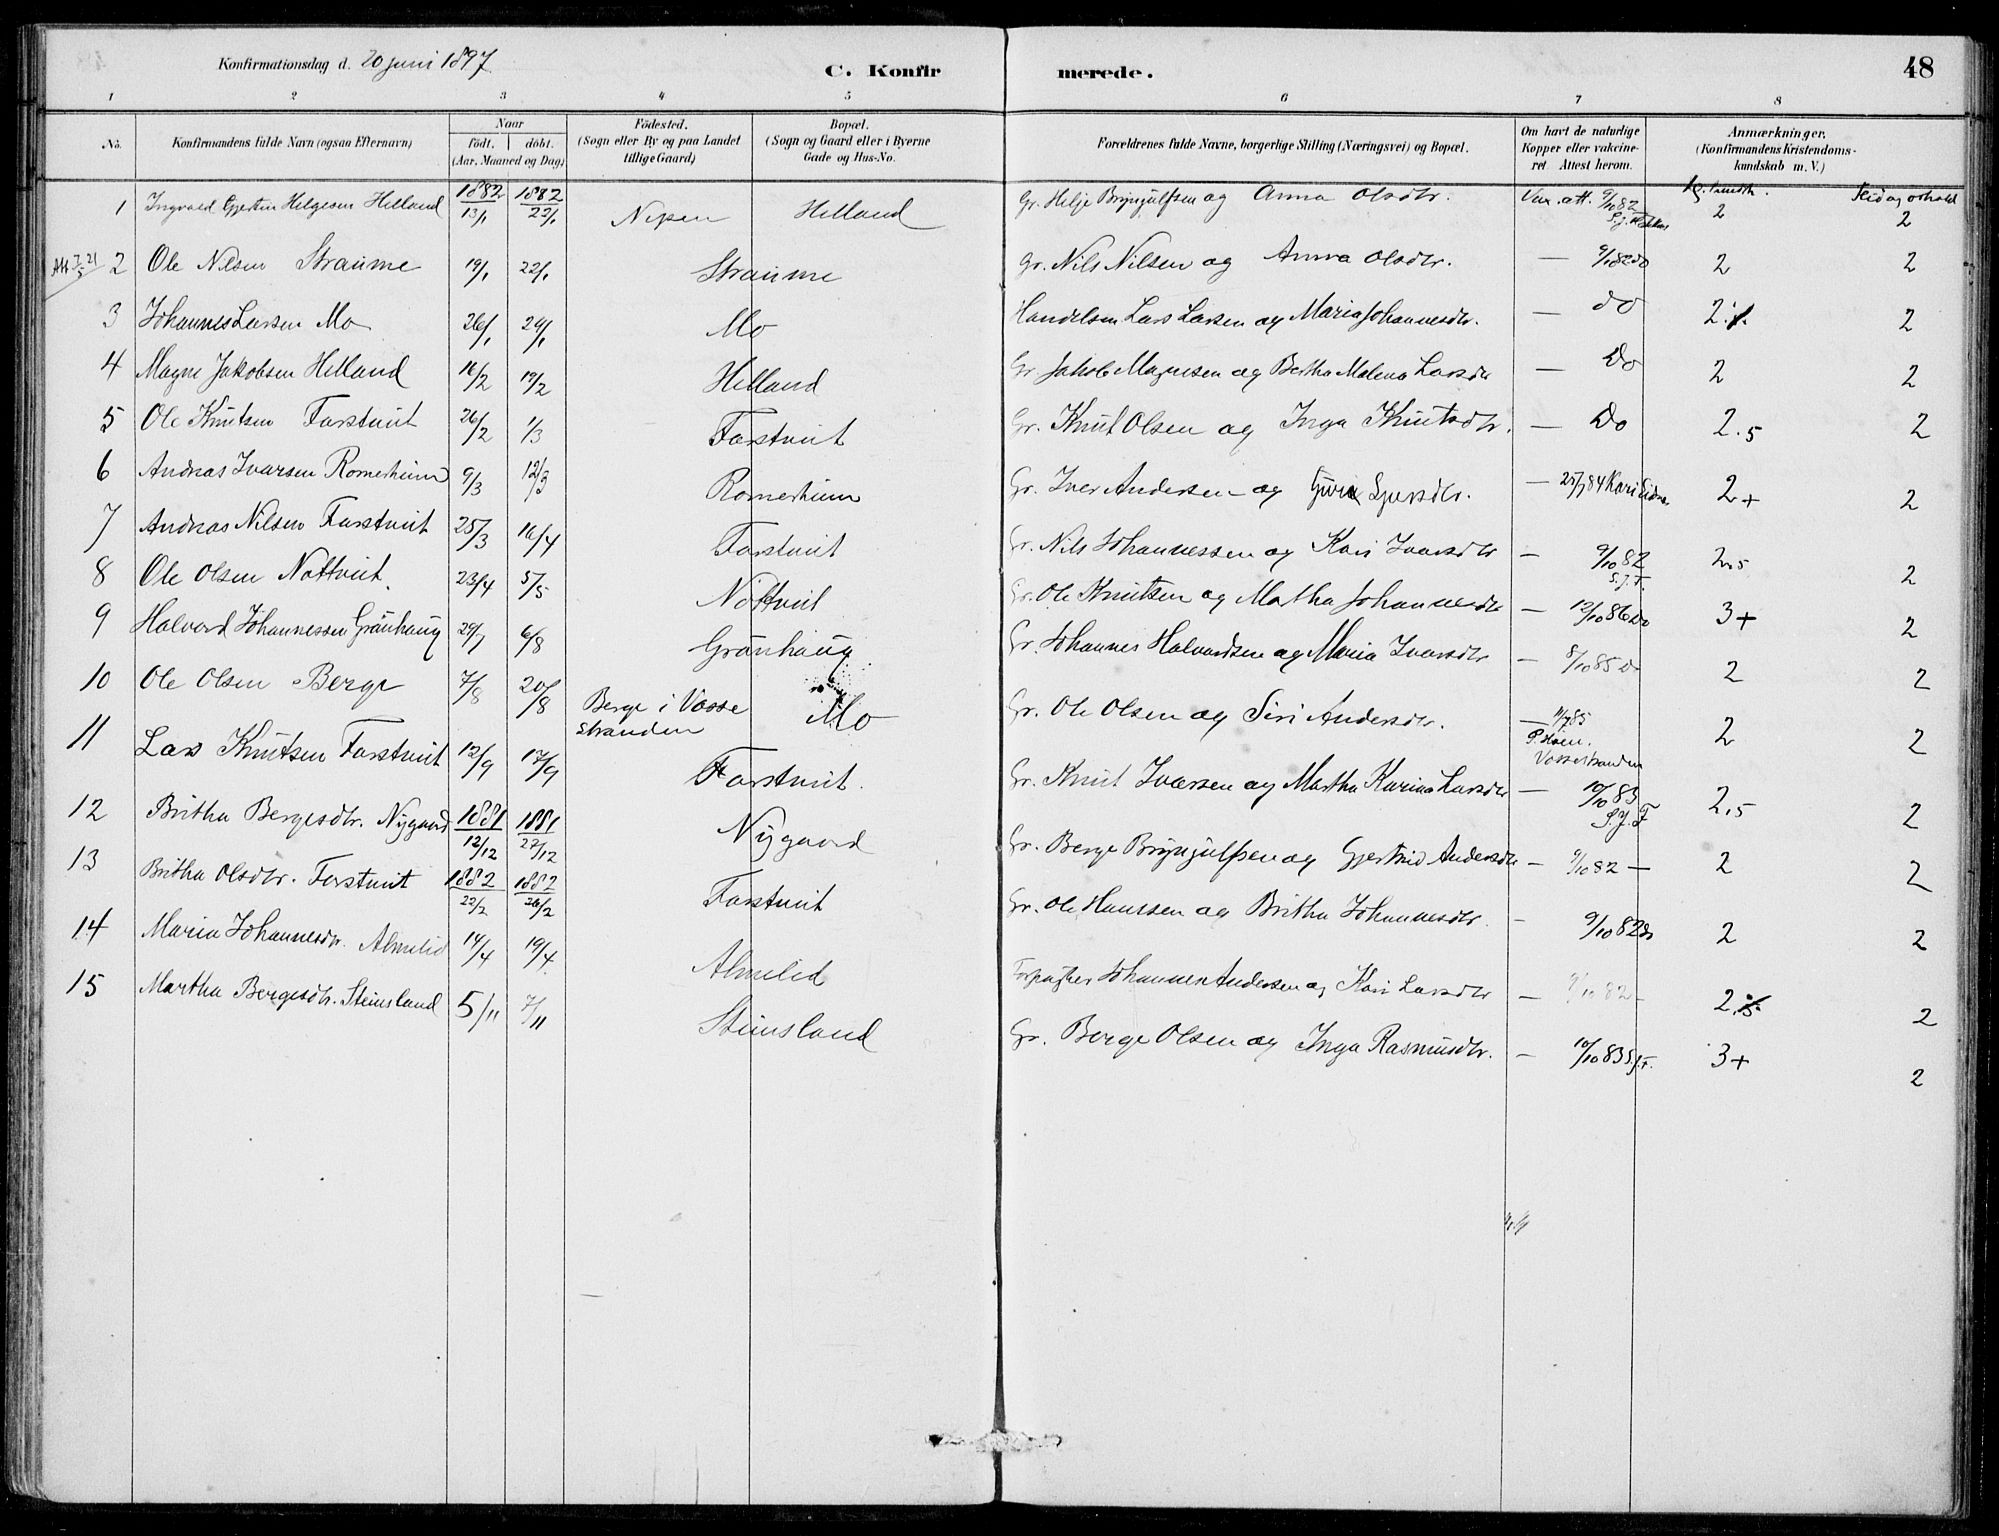 Konfirmationsdag d. 20 juni 1897
C. Konfirmerede.
48
1 2 3 4 5 6 7 8
No. Konfirmandens fulde Navn (ogsaa Efternavn) Naar födt. döbt. (Aar, Maaned og Dag) Födested. (Sogn eller By og paa Landet tillige Gaard) Bopæl. (Sogn og Gaard eller i Byerne Gade og Hus-No. Forældrenes fulde Navne, borgerlige Stilling (Næringsvei) og Bopæl. Om havt de naturlige Kopper eller vakcineret. Attest herom. Anmærkninger, (Konfirmandens Kristendomskundskab m. V.)
1 Ingvald Gjertin Helgesen Helland 1882 13/1 1882 22/1 Nesen Helland Gr. Helje Brynjulfsen og Anna Olsdtr. Vac. att. 9/10 82 2 2
2 Ole Nilsen Straume 19/1 22/1 Straume Gr. Nils Nilsen og Anna Olsdtr. — 9/10 82 do 2 2
3 Johannes Larsen Mo 26/1 29/1 Mo Handelsm Lars Larsen og Maria Johannesdtr. — do 2 2
4 Magne Jakobsen Helland 16/2 19/2 Helland Gr. Jakob Magnesen og Bertha Malena Larsdtr — Do 2 2
5 Ole Knutsen Farstveit 26/2 1/3 Farstveit Gr. Knut Olsen og Inga Knutsdtr. — Do 2.5 2
6 Andreas Ivarsen Romerheim 9/3 12/3 Romerheim Gr. Iver Andersen og Guri Sjursdtr. — 25/7 84 Kari 2+ 2
7 Andreas Nilsen Farstveit 25/3 16/4 Farstveit Gr. Nils Johannessen og Kari Ivarsdtr — 9/10 82 S.J.F. 2.5 2
8 Ole Olsen Nottveit 23/4 5/5 Nottveit Gr. Ole Knutsen og Martha Johannesdtr — 12/10 86 do 3+ 2
9 Halvard Johannessen Grönhaug 29/7 6/8 Grönhaug Gr. Johannes Halvardsen og Maria Ivarsdtr — 8/10 85 do 2 2
10 Ole Olsen Berge 7/8 20/8 Berge i Vossestranden Mo Gr. Ole Olsen og Siri Andersdtr. — 11/7 85 Vossestranden 2 2
11 Lars Knutsen Farstveit 12/9 17/9 Farstveit. Gr. Knut Ivarsen og Martha Karina Larsdtr — 10/10 83 S.J.F 2.5 2
12 Britha Bergesdtr. Nygaard 1881 12/12 1881 27/12 Nygaard Gr. Berge Brynjulfsen og Gjertrud Andersdtr — 9/10 82 — 2 2
13 Britha Olsdtr. Farstveit 1882 22/2 1882 26/2 Farstveit Gr. Ole Hanssen og Britha Johannesdtr. — 9/10 82 do 2 2
14 Maria Johannesdtr. Almelid 14/4 19/4 Almelid Forpagter Johannes Andersen og Kari Larsdtr — 9/10 82 — 2 2
15 Martha Bergesdtr. Steinsland 5/11 7/11 Steinsland Gr. Berge Olsen og Inga Rasmusdtr. — 10/10 83 S.J.F. 3+ 2